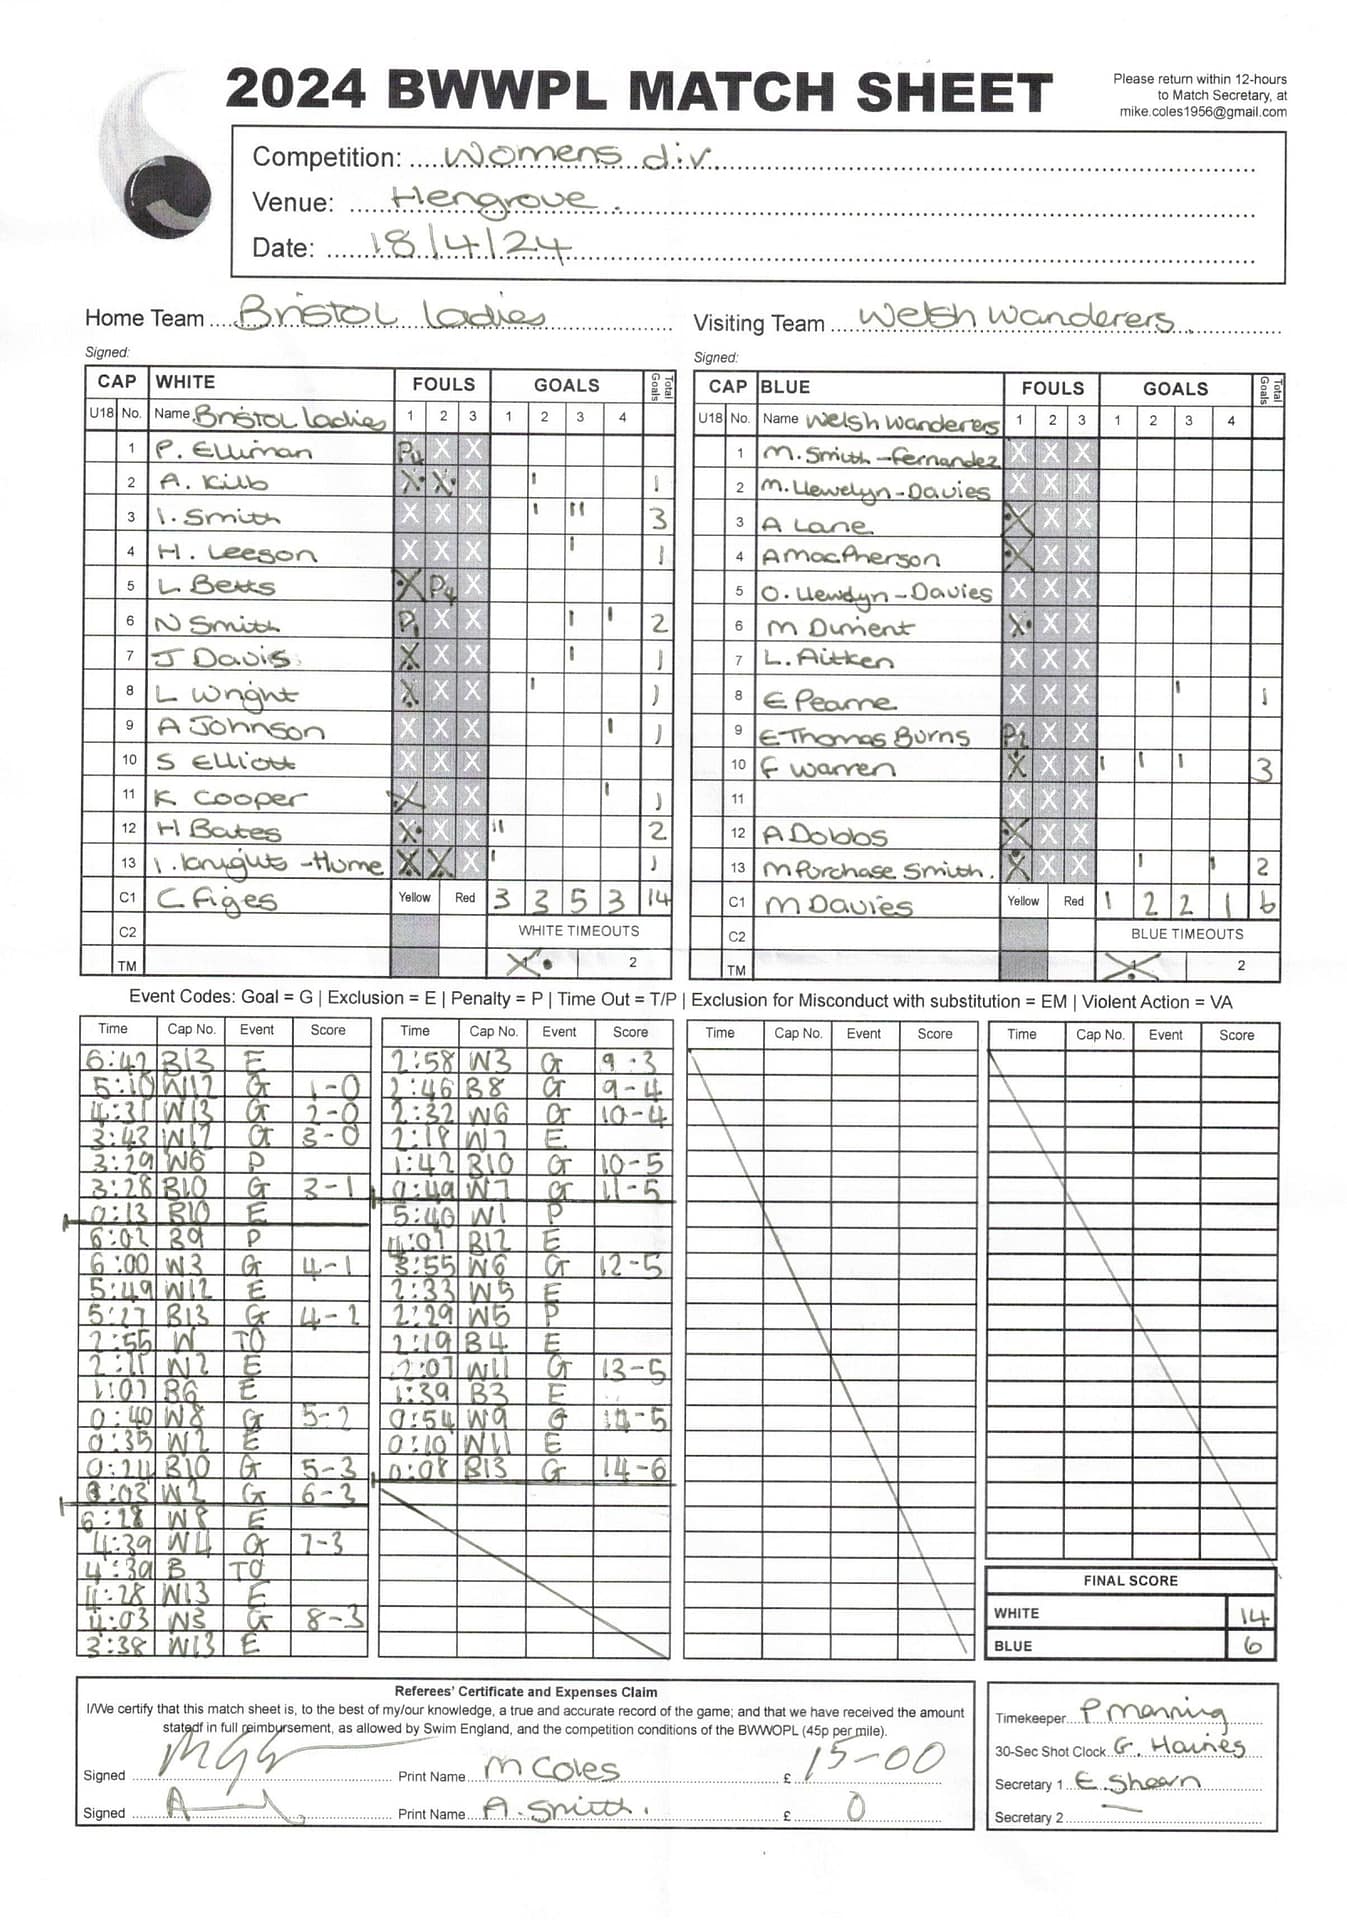 2024 BWWPL MATCH SHEET
Please return within 12-hours
to Match Secretary, at
mike.coles1956@gmail.com
Competition: Womens div
Venue: Hengrove.
Date: 18/4/24
Home Team Bristol Ladies
Visiting Team Welsh Wanderers.
Signed:
Signed:
CAP WHITE FOULS GOALS Total Goals
U18 No. Name Bristol Ladies 1 2 3 1 2 3 4
1 P. Elliman P4 X X
2 A. Kilb X X X I 1
3 I. Smith X X X I II 3
4 H. Leeson X X X I 1
5 L. Betts X P4 X
6 N Smith P1 X X I I 2
7 J Davis X X X I 1
8 L Wright X X X I 1
9 A Johnson X X X I 1
10 S Elliott X X X
11 K Cooper X X X I 1
12 H Bates X X X II 2
13 I. Knights-Hume X X X I 1
C1 C Figes Yellow Red 3 3 5 3 14
C2 WHITE TIMEOUTS
TM X 2
CAP BLUE FOULS GOALS Total Goals
U18 No. Name Welsh Wanderers 1 2 3 1 2 3 4
1 M. Smith-Fernandez X X X
2 M. Llewelyn-Davies X X X
3 A Lane X X X
4 A MacPherson X X X
5 O. Llewelyn-Davies X X X
6 M Diment X X X
7 L. Aitken X X X
8 E Pearne X X X I 1
9 E Thomas Burns P2 X X
10 F Warren X X X I I I 3
11 X X X
12 A Dobbs X X X
13 M Purchase Smith. X X X I I 2
C1 M Davies Yellow Red 1 2 2 1 6
C2 BLUE TIMEOUTS
TM X 2
Event Codes: Goal = G | Exclusion = E | Penalty = P | Time Out = T/P | Exclusion for Misconduct with substitution = EM | Violent Action = VA
Time Cap No. Event Score
6:42 B13 E
5:10 W12 G 1-0
4:31 W13 G 2-0
3:43 W12 G 3-0
3:29 W6 P
3:28 B10 G 3-1
0:13 B10 E
6:02 B9 P
6:00 W3 G 4-1
5:49 W12 E
5:27 B13 G 4-2
2:55 W TO
2:11 W2 E
1:07 B6 E
0:40 W8 G 5-2
0:35 W2 E
0:24 B10 G 5-3
0:03 W2 G 6-3
6:28 W8 E
4:39 W4 G 7-3
4:39 B TO
4:28 W13 E
4:03 W3 G 8-3
3:38 W13 E
Time Cap No. Event Score
2:58 W3 G 9-3
2:46 B8 G 9-4
2:32 W6 G 10-4
2:18 W7 E
1:42 B10 G 10-5
0:49 W7 G 11-5
5:40 W1 P
4:07 B12 E
3:55 W6 G 12-5
2:33 W5 E
2:29 W5 P
2:19 B4 E
2:07 W11 G 13-5
1:39 B3 E
0:54 W9 G 14-5
0:10 W11 E
0:08 B13 G 14-6
Time Cap No. Event Score
Time Cap No. Event Score
FINAL SCORE
WHITE 14
BLUE 6
Referees' Certificate and Expenses Claim
I/We certify that this match sheet is, to the best of my/our knowledge, a true and accurate record of the game; and that we have received the amount
statedf in full reimbursement, as allowed by Swim England, and the competition conditions of the BWWOPL (45p per mile).
Signed Print Name M Coles £ 15-00
Signed Print Name A. Smith. £ 0
Timekeeper P Manning
30-Sec Shot Clock G. Haines
Secretary 1 E. Shearn
Secretary 2 —